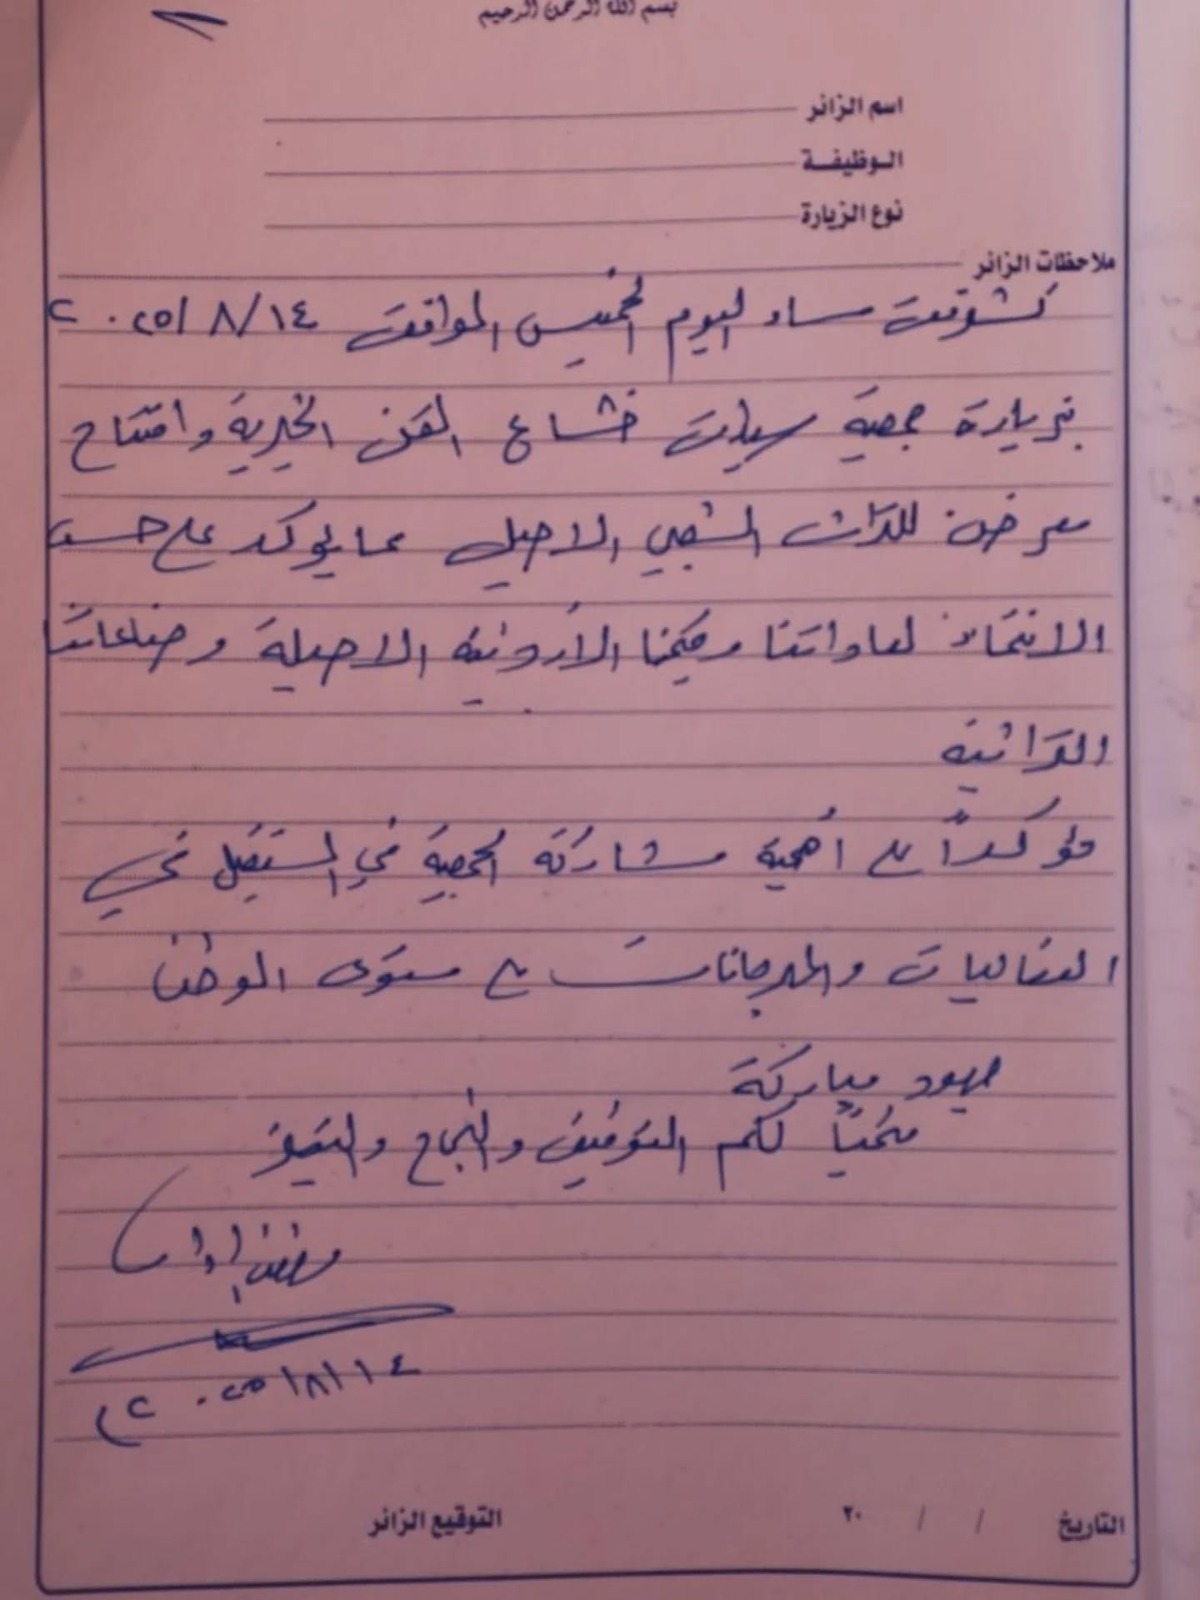 بسم الله الرحمن الرحيم
اسم الزائر
الوظيفة
نوع الزيارة
ملاحظات الزائر
تشرفت مساء اليوم الخميس الموافق ١٤/٨/٢٠٢٥
بزيارة جمعية سيدات الفن الخيرية وافتتاح
معرض للتراث الشعبي الاصيل مما يؤكد على حسن
الانتماء لعاداتنا وقيمنا الأردنية الاصيلة وصناعاتنا
التراثية
مؤكداً على أهمية مشاركة الجمعية في المستقبل في
الفعاليات والمهرجانات على مستوى الوطن
جهود مباركة
متمنياً لكم التوفيق والنجاح والتميز
١٤/٨/٢٠٢٥
التاريخ / / ٢٠
التوقيع الزائر